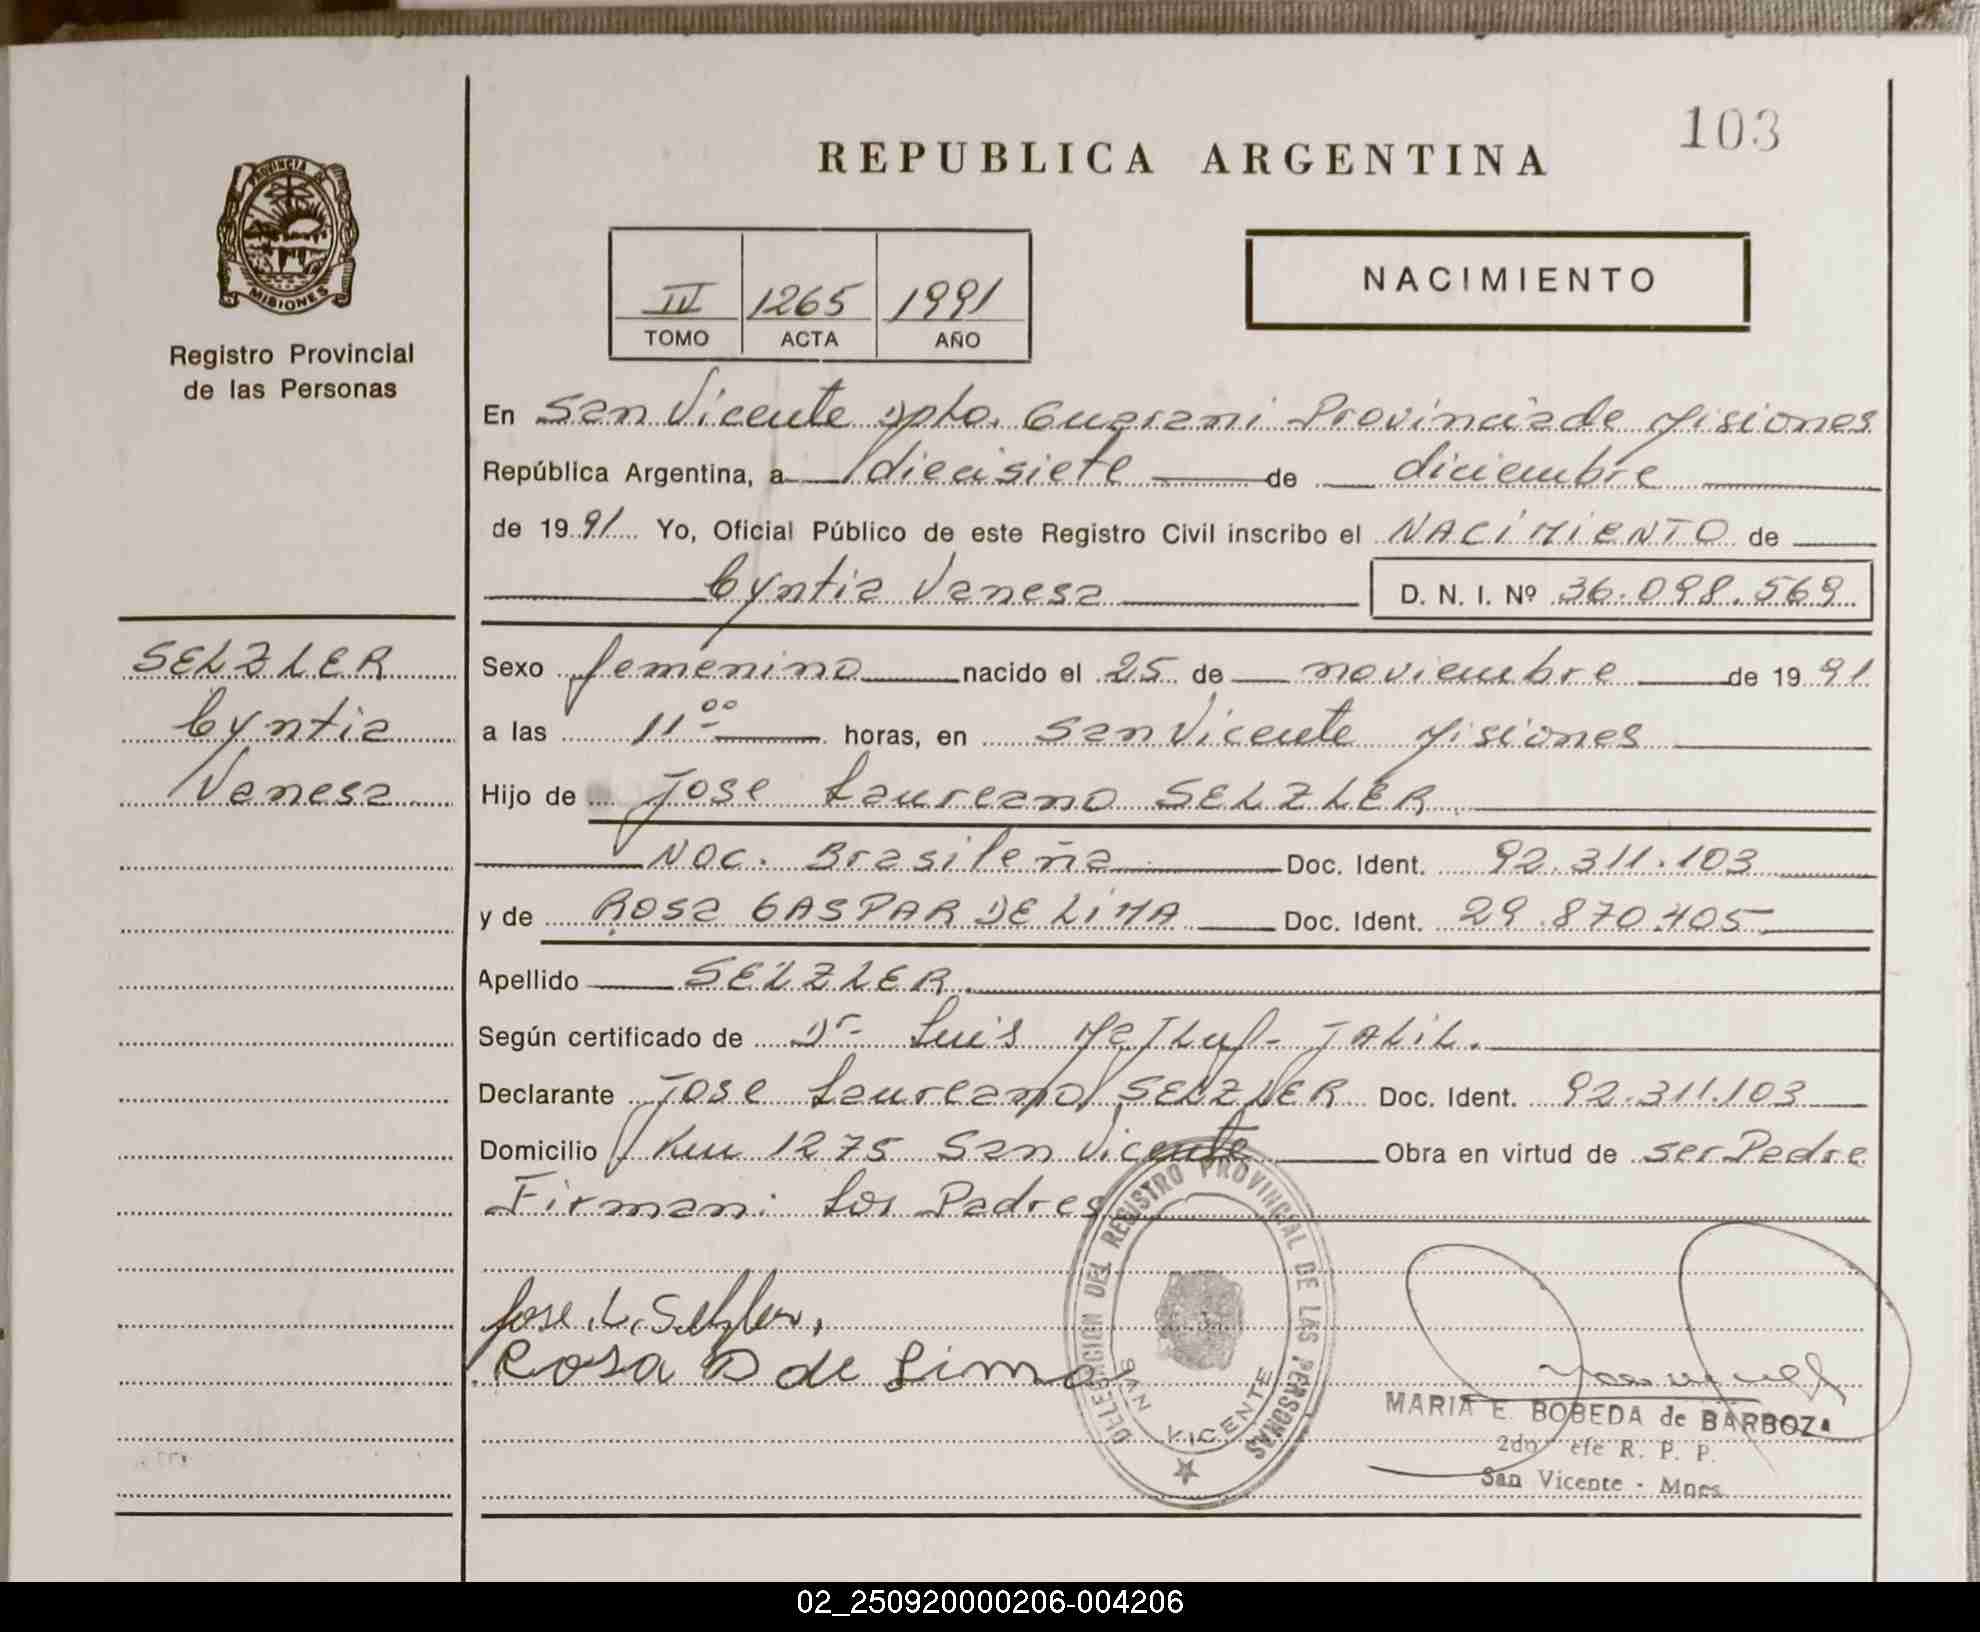 103
REPUBLICA ARGENTINA
PROVINCIA DE
MISIONES
Registro Provincial
de las Personas
NACIMIENTO
IV 1265 1991
TOMO ACTA AÑO
En San Vicente Dpto. Guarani Provincia de Misiones
República Argentina, a diecisiete de diciembre
de 1991 Yo, Oficial Público de este Registro Civil inscribo el NACIMIENTO de
Cyntia Vanesa D. N. I. Nº 36.098.569
SELZLER
Cyntia
Vanesa
Sexo femenino nacido el 25 de noviembre de 1991
a las 11 00 horas, en San Vicente Misiones
Hijo de Jose Laureano SELZLER
Nac. Brasileña Doc. Ident. 92.311.103
y de Rosa GASPAR DE LIMA Doc. Ident. 29.870.405
Apellido SELZLER.
Según certificado de Dr Luis JALIL.
Declarante Jose Laureano SELZLER Doc. Ident. 92.311.103
Domicilio Km 1275 San Vicente Obra en virtud de ser Padre
Firman: Los Padres
Jose. L. Selzler.
Rosa D de Lima
DELEGACION DEL REGISTRO PROVINCIAL DE LAS PERSONAS
SAN VICENTE
MARIA E. BOBEDA de BARBOZA
2do efe R. P. P.
San Vicente - Mnes.
02_250920000206-004206